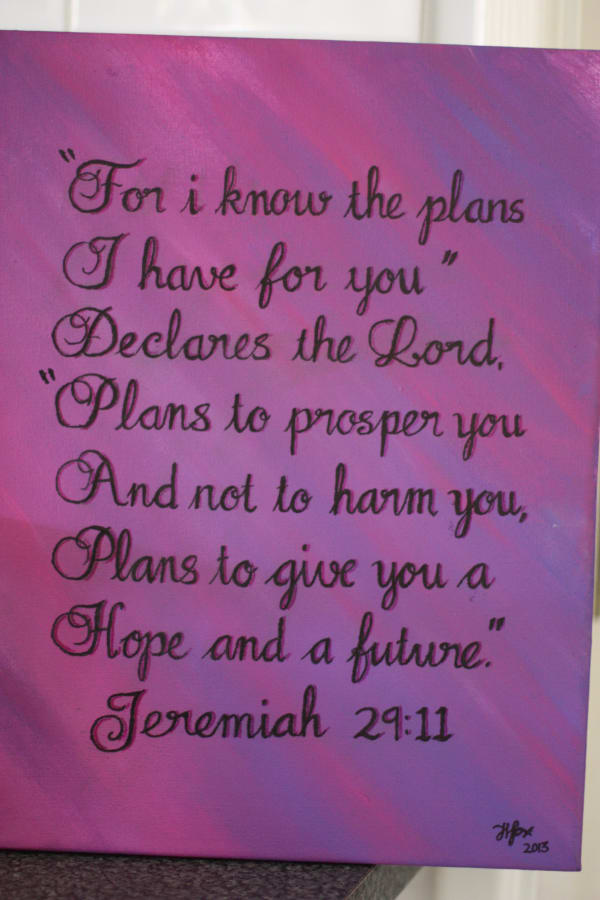 "For i know the plans
I have for you"
Declares the Lord,
"Plans to prosper you
And not to harm you,
Plans to give you a
Hope and a future."
Jeremiah 29:11
2013